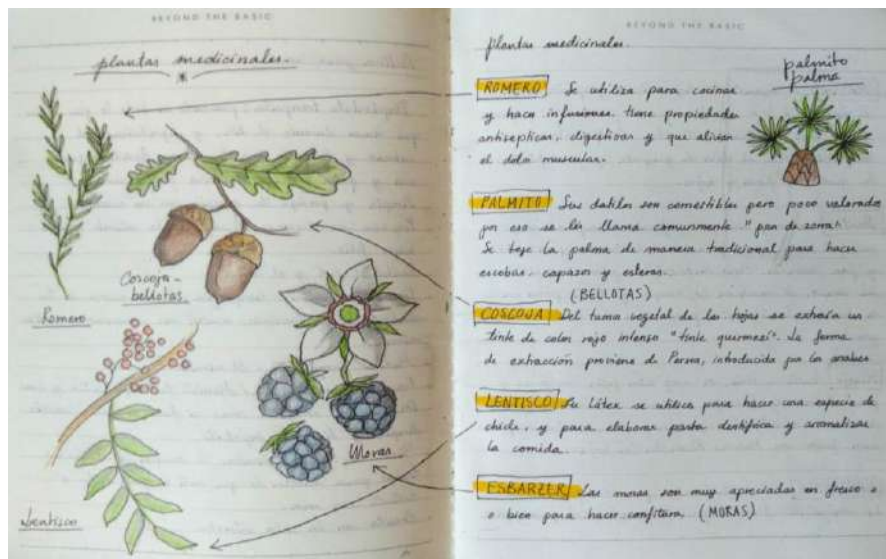 BEYOND THE BASIC
plantas medicinales.
Romero
Coscoja-
bellotas
Moras
Lentisco
BEYOND THE BASIC
plantas medicinales.
palmito
palma
ROMERO Se utiliza para cocinar
y hacer infusiones. tiene propiedades
antisepticas, digestivas y que alivian
el dolor muscular.
PALMITO Sus datiles son comestibles pero poco valorados
por eso se les llama comunmente "pan de zorra"
Se teje la palma de manera tradicional para hacer
escobas, capazos y esteras.
(BELLOTAS)
COSCOJA Del tumor vegetal de las hojas se extraía un
tinte de color rojo intenso "tinte quermezí". La forma
de extracción proviene de Persia, introducida por los arabes
LENTISCO Su Látex se utiliza para hacer una especie de
chicle, y para elaborar pasta dentífrica y aromatizar
la comida.
ESBARZER Las moras son muy apreciadas en fresco o
o bien para hacer confitura. (MORAS)